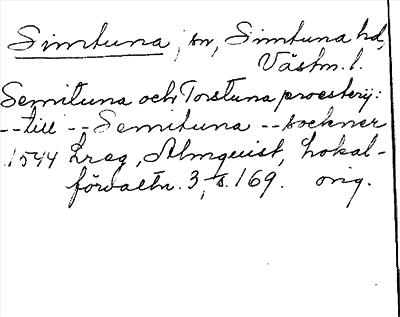 Simtuna, sn, Simtuna hd,
Västm. l.
Semituna och Torstuna prœsterij:
-- till -- Semituna -- sockner
1544 Lreg, Almquist, Lokal-
förvaltn. 3, s. 169. orig.